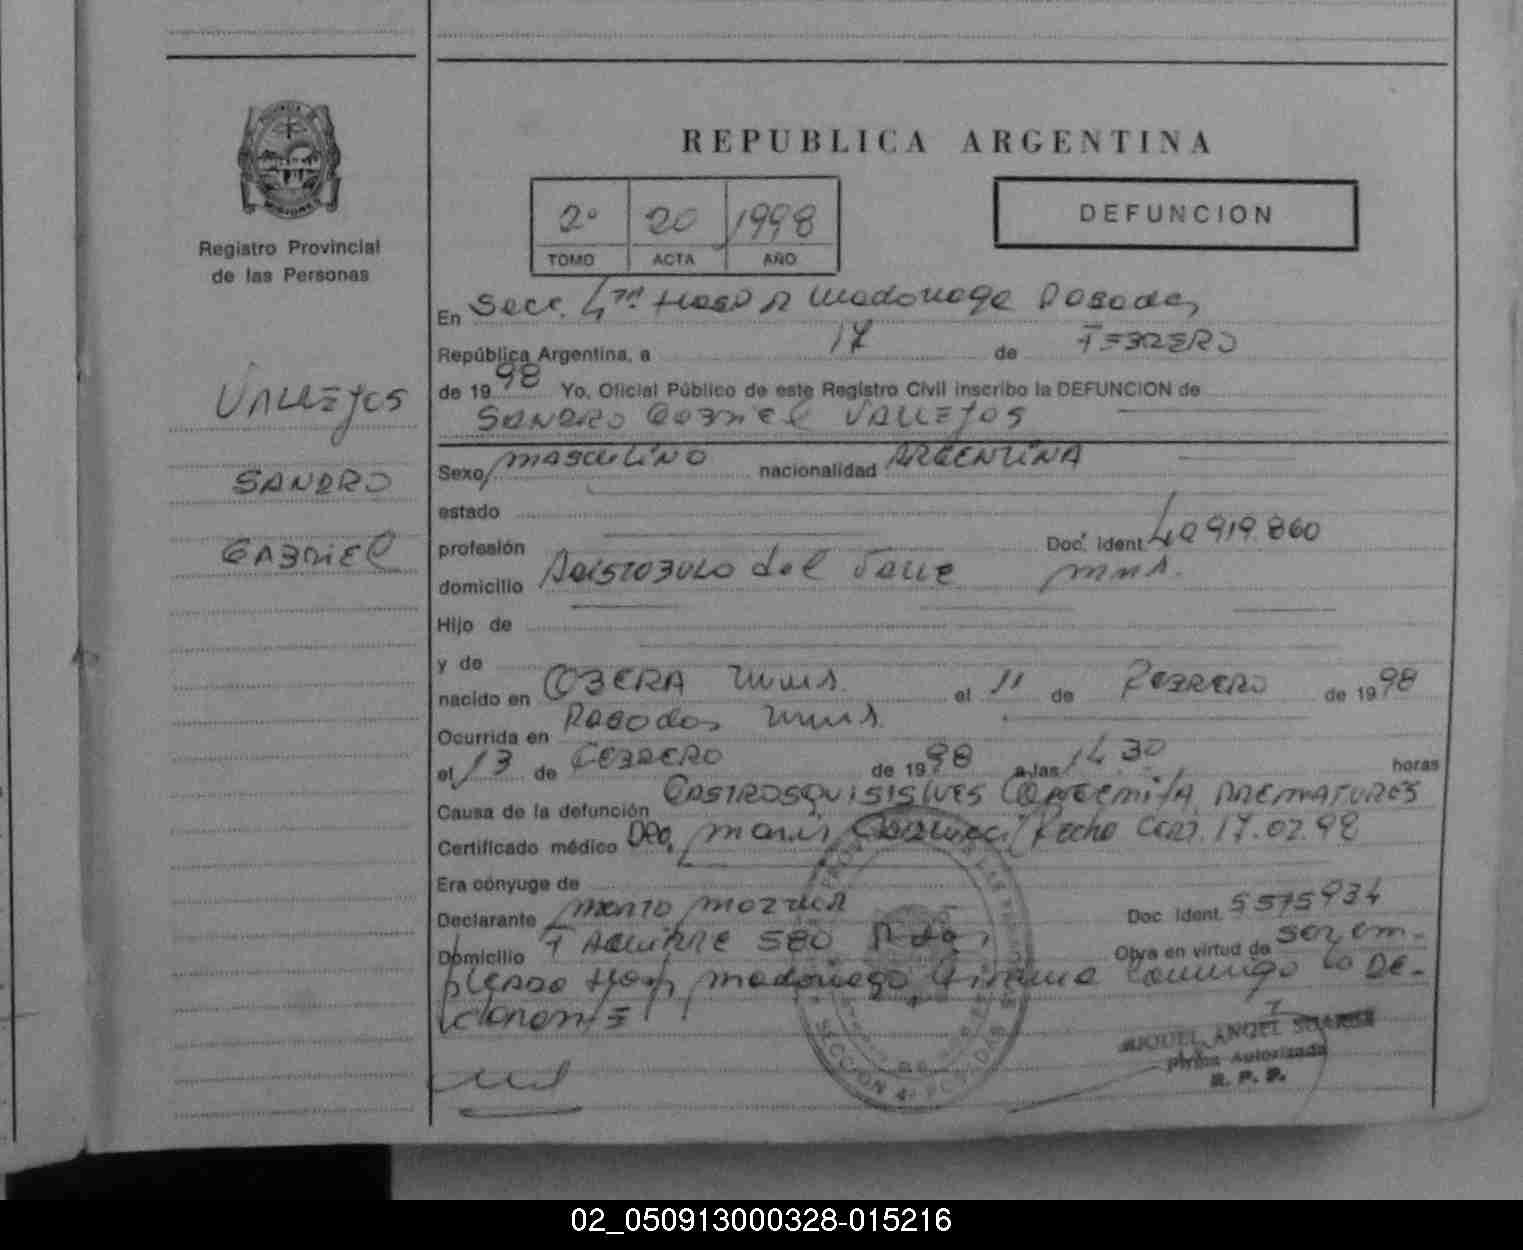 REPUBLICA ARGENTINA
2º 20 1998
TOMO ACTA AÑO
DEFUNCION
Registro Provincial
de las Personas
VALLEJOS
SANDRO
GABRIEL
En Secc. 4ta Hosp R Madariaga Posadas
República Argentina, a 17 de FEBRERO
de 1998 Yo, Oficial Público de este Registro Civil inscribo la DEFUNCION de
SANDRO GABRIEL VALLEJOS
Sexo MASCULINO nacionalidad ARGENTINA
estado
profesión Doc. Ident. 40919.860
domicilio ARISTOBULO del Valle Mnes.
Hijo de
y de
nacido en OBERA Mnes. el 11 de FEBRERO de 1998
Ocurrida en Posadas Mnes.
el 13 de FEBRERO de 1998 a las 14 30 horas
Causa de la defunción PREMATURES
Certificado médico Dra. Fecha Cert. 17.02.98
Era cónyuge de
Declarante
Doc. Ident. 5575934
Domicilio F AGUIRRE 580 Pdas, Obra en virtud de ser em-
pleado Hosp Madariaga Firma conmigo la De-
clarante
SECCION 4ª POSADAS
MIGUEL ANGEL SUAREZ
Firma Autorizada
R. P. P.
02_050913000328-015216